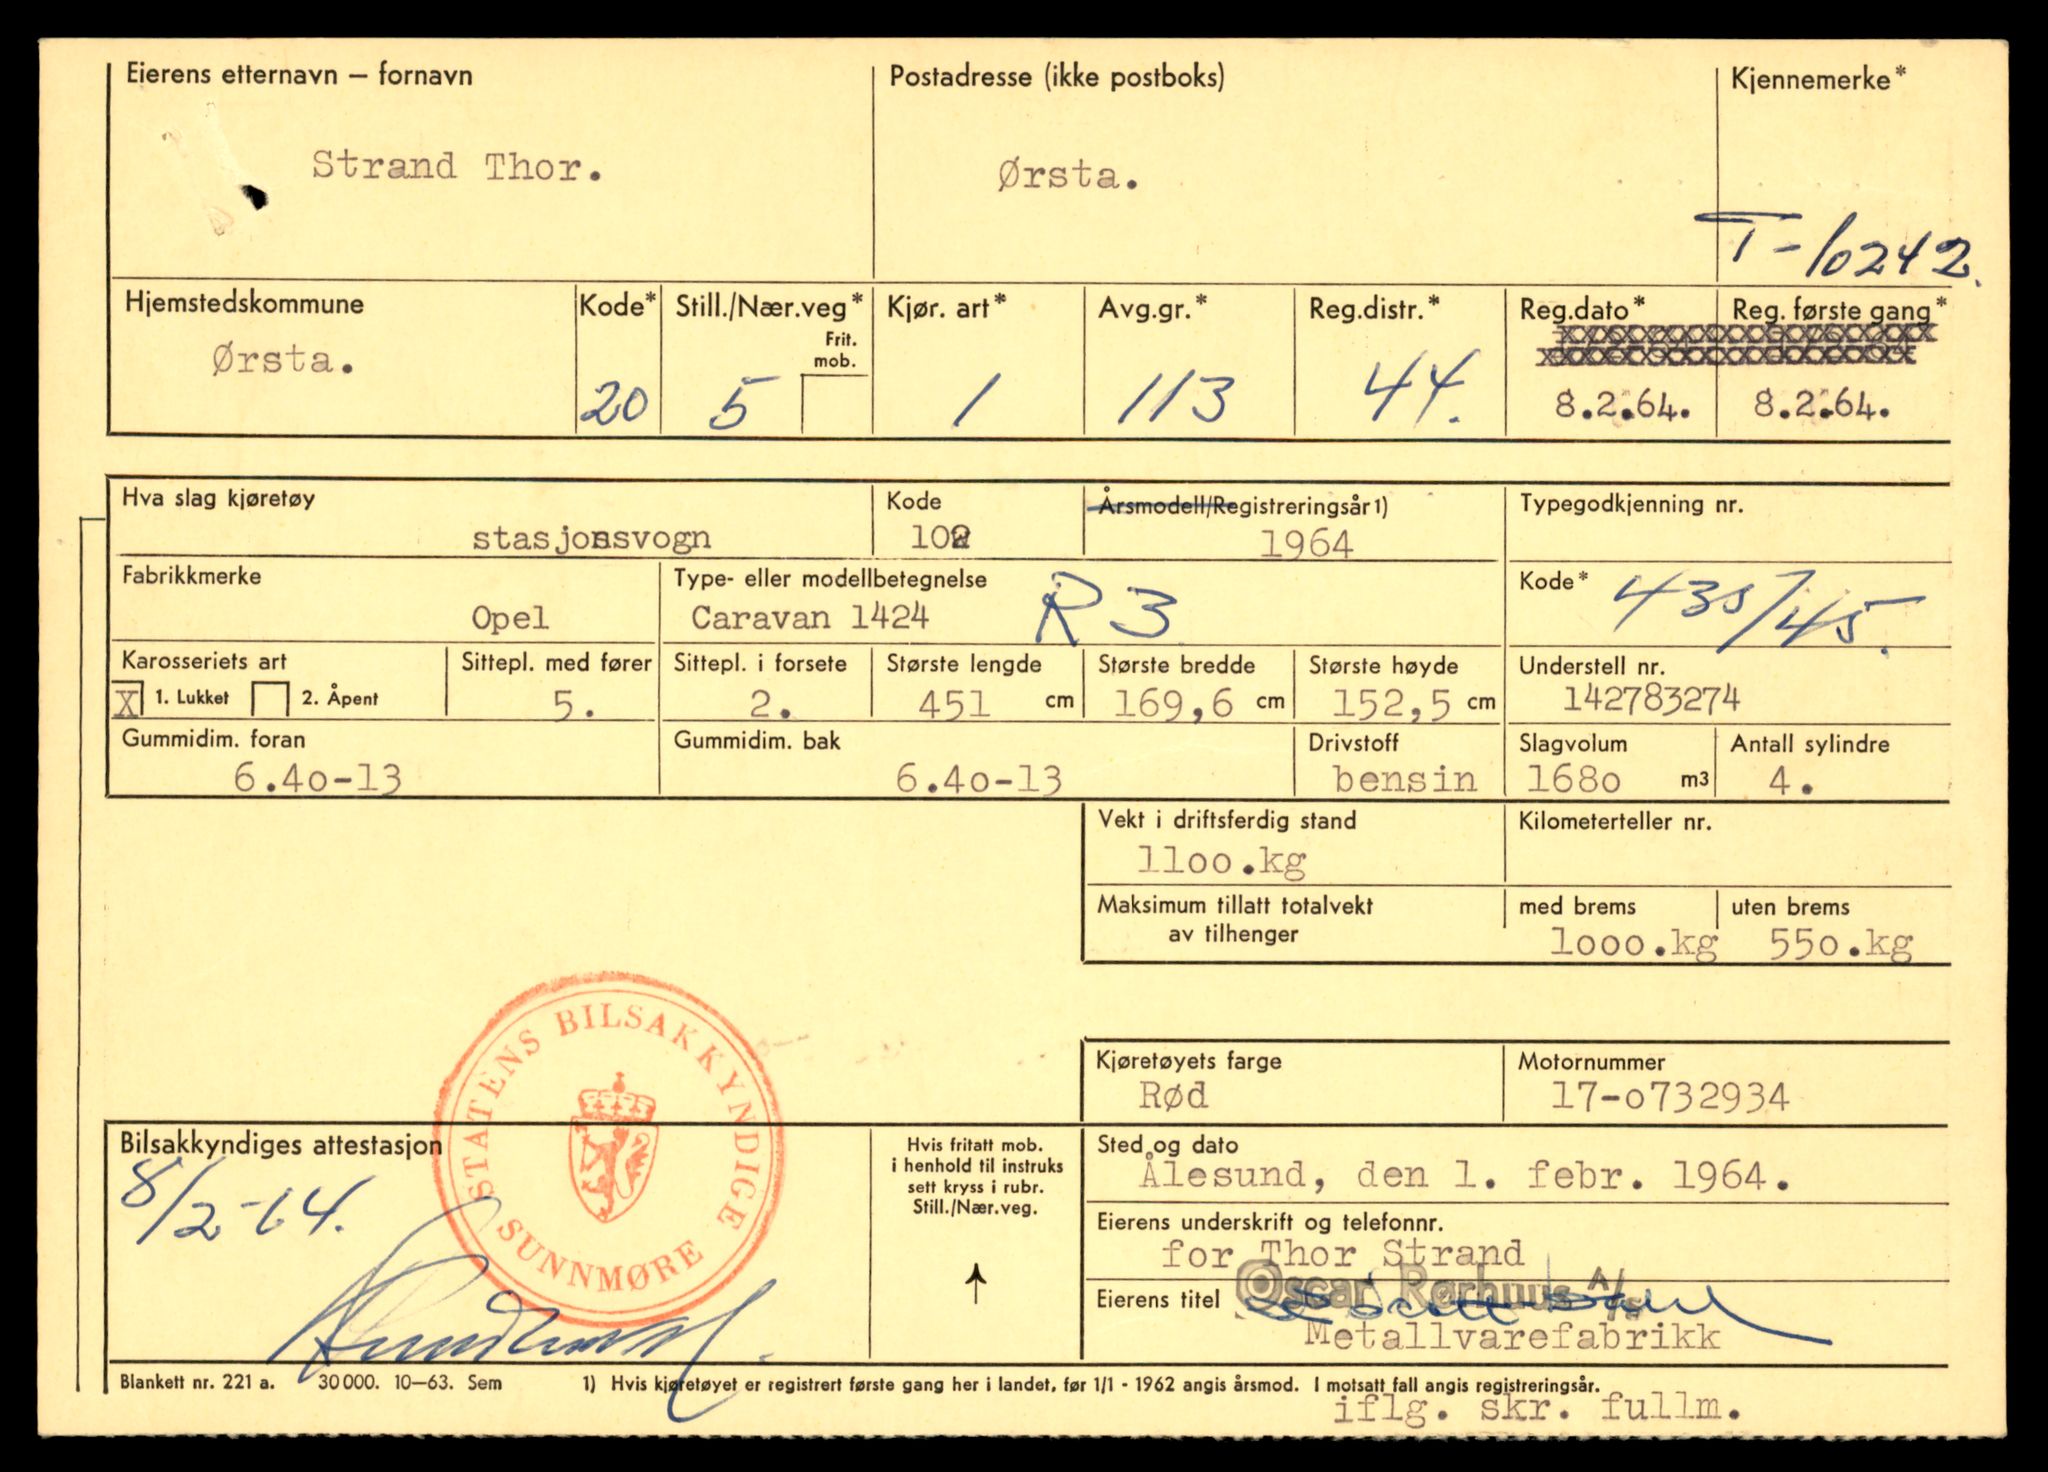 Eierens etternavn – fornavn
Strand Thor.
Postadresse (ikke postboks)
Ørsta.
Kjennemerke*
T-10242.
Hjemstedskommune
Ørsta.
Kode*
20
Still./Nær.veg*
Frit. mob.
5
Kjør. art*
1
Avg.gr.*
113
Reg.distr.*
44.
Reg.dato*
8.2.64.
Reg. første gang*
8.2.64.
Hva slag kjøretøy
stasjonsvogn
Kode
102
Årsmodell/Registreringsår 1)
1964
Typegodkjenning nr.
Fabrikkmerke
Opel
Type- eller modellbetegnelse
Caravan 1424 R 3
Kode*
435/45.
Karosseriets art
X 1. Lukket 2. Åpent
Sittepl. med fører
5.
Sittepl. i forsete
2.
Største lengde
451 cm
Største bredde
169,6 cm
Største høyde
152,5 cm
Understell nr.
142783274
Gummidim. foran
6.4o-13
Gummidim. bak
6.4o-13
Drivstoff
bensin
Slagvolum
168o m3
Antall sylindre
4.
Vekt i driftsferdig stand
11oo.kg
Kilometerteller nr.
Maksimum tillatt totalvekt
av tilhenger
med brems
1ooo.kg
uten brems
55o.kg
Kjøretøyets farge
Rød
Motornummer
17-o732934
STATENS BILSAKKYNDIGE
SUNNMØRE
Bilsakkyndiges attestasjon
8/2-64.
Hvis fritatt mob.
i henhold til instruks
sett kryss i rubr.
Still./Nær.veg.
Sted og dato
Ålesund, den 1. febr. 1964.
Eierens underskrift og telefonnr.
for Thor Strand
Oscar Rørhuus A/S
Eierens titel
Metallvarefabrikk
Blankett nr. 221 a. 30 000. 10–63. Sem
1) Hvis kjøretøyet er registrert første gang her i landet, før 1/1 - 1962 angis årsmod. I motsatt fall angis registreringsår.
iflg. skr. fullm.